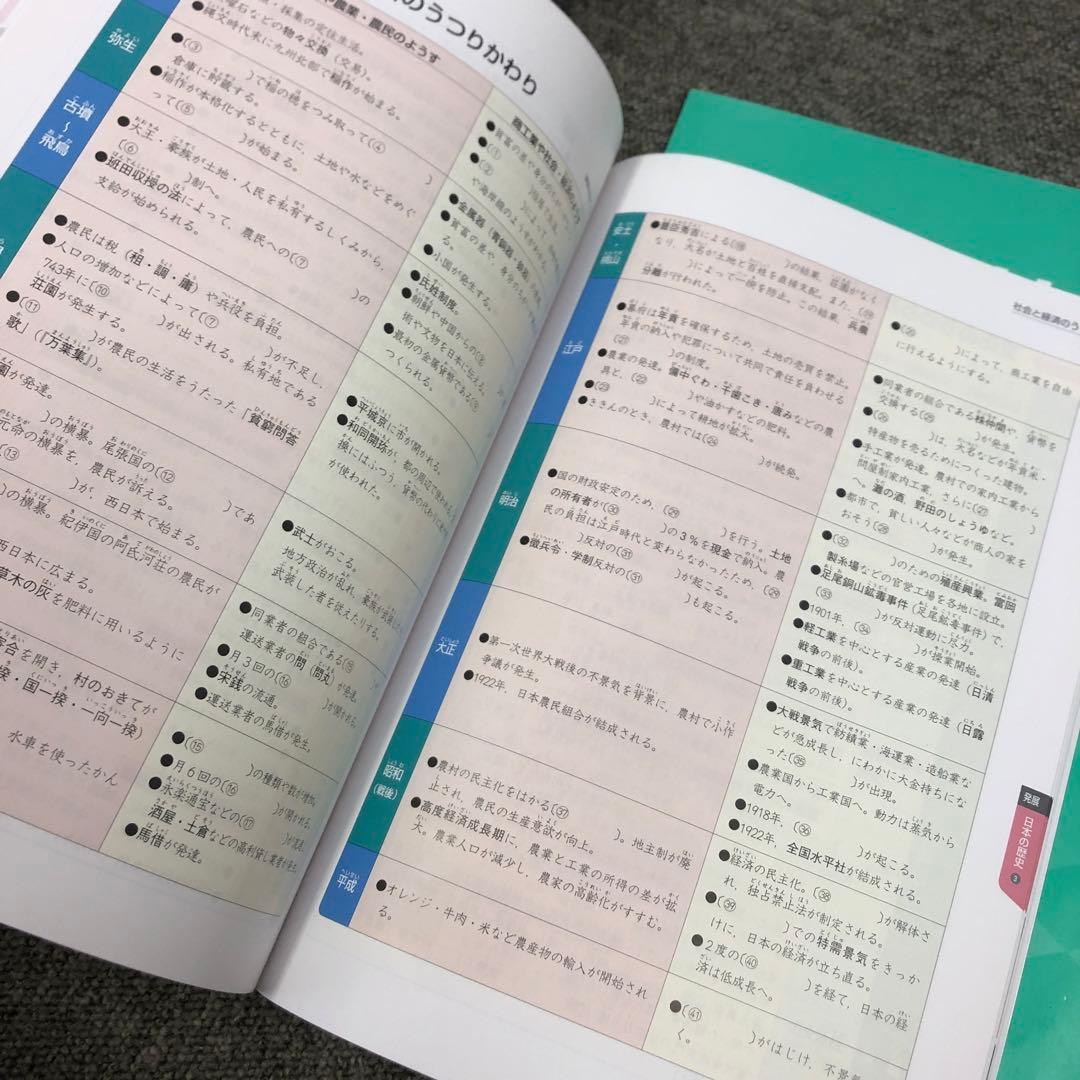 のうつりかわり
や農業・農民のようす
・採集の定住生活。
曜石などの物々交換（交易）。
●縄文時代末に九州北部で稲作が始まる。
弥生
●(③　　　)で稲の穂をつみ取って(④　　　)
倉庫に貯蔵する。
●稲作が本格化するとともに、土地や水などをめぐ
って(⑤　　　)が始まる。
古墳
～
飛鳥
●大王・豪族が土地・人民を私有するしくみから、
(⑥　　　)制へ。
●班田収授の法によって、農民への(⑦　　　)の
支給が始められる。
●農民は税（租・調・庸）や兵役を負担。
●人口の増加などによって(⑦　　　)が不足し、
743年に(⑩　　　)が出される。私有地である
荘園が発生する。
●(⑪　　　)が農民の生活をうたった「貧窮問答
歌」（『万葉集』）。
園が発達。
)の横暴。尾張国の(⑫　　　)であ
元命の横暴を、農民が訴える。
(⑬　　　)が、西日本で始まる。
)の横暴。紀伊国の阿氐河荘の農民が
西日本に広まる。
草木の灰を肥料に用いるように
寄合を開き、村のおきてが
揆・国一揆・一向一揆）
水車を使ったかん
商工業や社会・経済の
●(①
●(②
●金属器（青銅器・鉄器）
●小国が発生する。
●氏姓制度。
●朝鮮や中国からの(⑧
術や文物を日本に伝える。
●最初の金属貨幣である(⑨
つくられる。
●平城京に市が開かれる。
●和同開珎が、都の周辺で使われる。
換にはふつう、貨幣の代わりに
が使われた。
●武士がおこる。
地方政治が乱れ、豪族が武装した
武装した者を従えたりする。
●同業者の組合である(⑮
運送業者の問（問丸）が発達。
●月３回の(⑯　　　)が開かれる。
●宋銭の流通。
●運送業者の馬借が発生。
●(⑮　　　)の種類や数が増加。
●月６回の(⑯　　　)が開かれる。
●永楽通宝などの(⑰　　　)が流通。
酒屋・土倉などの高利貸し業者が発達。
●馬借が発達。
社会と経済のう
安土
・
桃山
●豊臣秀吉による(⑱　　　)の結果、荘園がなく
なり、大名が土地と百姓を直接支配。また、(⑲
)によって一揆を防止。この結果、兵農
分離が行われた。
●(⑳　　　)によって、商工業を自由
に行えるようにする。
江戸
●幕府は年貢を確保するため、土地の売買を禁止。
年貢の納入や犯罪について共同で責任を負わせる
(㉑　　　)の制度。
●農業の発達。備中ぐわ・千歯こき・唐みなどの農
具と、(㉒　　　)や油かすなどの肥料。
●(㉓　　　)によって耕地が拡大。
●ききんのとき、農村では(㉔　　　)が続発。
●同業者の組合である株仲間や、貨幣を
交換する(㉕　　　)が発生。
●(㉖　　　)は、大名などが年貢米・
特産物を売るためにつくった建物。
●手工業が発達。農村での家内工業から
問屋制家内工業、さらに(㉗　　　)
へ。灘の酒、野田のしょうゆなど。
●都市で、貧しい人々などが商人の家を
おそう(㉘　　　)が発生。
明治
●国の財政安定のため、(㉙　　　)を行う。土地
の所有者が(㉚　　　)の３％を現金で納入。農
民の負担は江戸時代と変わらなかったため、(㉙
)反対の(㉛　　　)が起こる。
●徴兵令・学制反対の(㉛　　　)も起こる。
●(㉜　　　)のための殖産興業。富岡
製糸場などの官営工場を各地に設立。
●足尾銅山鉱毒事件（足尾鉱毒事件）で、
(㉝　　　)が反対運動に尽力。
●1901年、(㉞　　　)が操業開始。
●軽工業を中心とする産業の発達（日清
戦争の前後）。
●重工業を中心とする産業の発達（日露
戦争の前後）。
大正
●第一次世界大戦後の不景気を背景に、農村で小作
争議が発生。
●1922年、日本農民組合が結成される。
●大戦景気で紡績業・海運業・造船業な
どが急成長し、にわかに大金持ちにな
った(㉟　　　)が出現。
●農業国から工業国へ。動力は蒸気から
電力へ。
●1918年、(㊱　　　)が起こる。
●1922年、全国水平社が結成される。
昭和
（戦後）
●農村の民主化をはかる(㊲　　　)。地主制が廃
止され、農民の生産意欲が向上。
●高度経済成長期に、農業と工業の所得の差が拡
大。農業人口が減少し、農家の高齢化がすすむ。
●経済の民主化。(㊳　　　)が解体さ
れ、独占禁止法が制定される。
●(㊴　　　)での特需景気をきっか
けに、日本の経済が立ち直る。
●２度の(㊵　　　)を経て、日本の経
済は低成長へ。
平成
●オレンジ・牛肉・米など農産物の輸入が開始され
る。
●(㊶　　　)がはじけ、不景気
く。
発展
日本の歴史
3